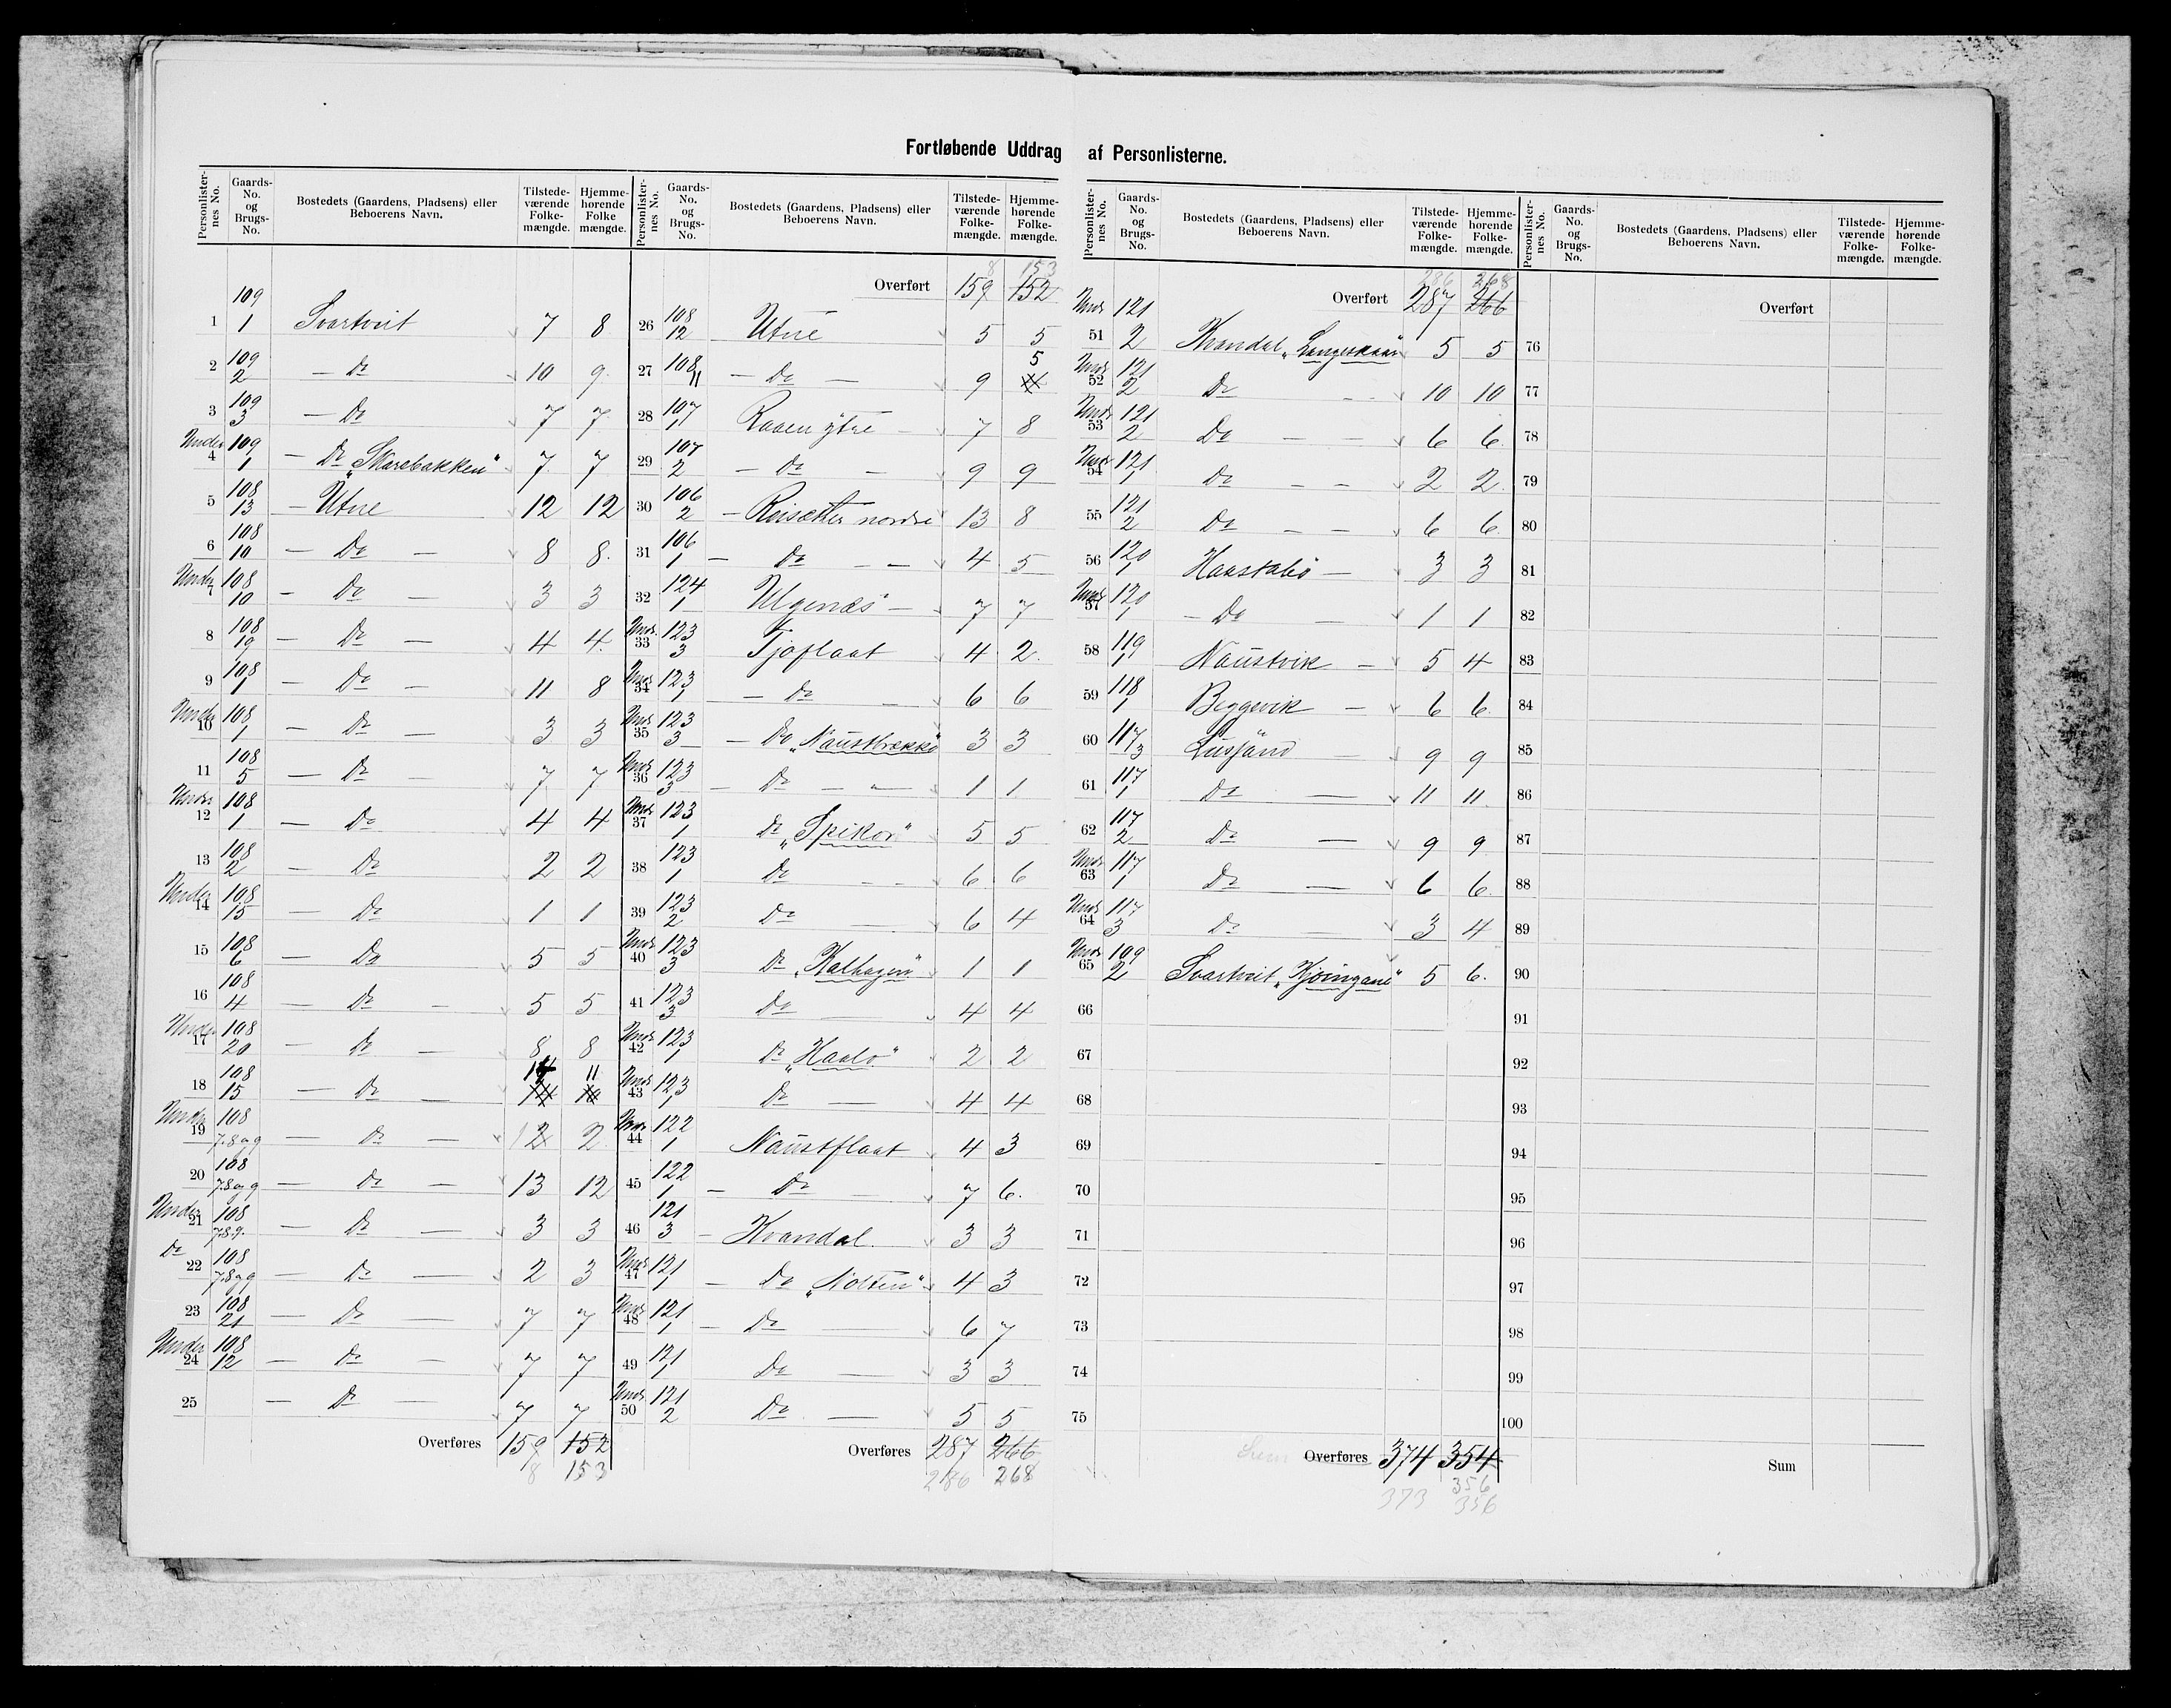 Fortløbende Uddrag af Personlisterne.
Personlister-nes No. Gaards-No. og Brugs-No. Bostedets (Gaardens, Pladsens) eller Beboerens Navn. Tilstede-værende Folke-mængde. Hjemme-hørende Folke mængde.
1 109/1 Svartveit 7 8
2 109/2 — Do 10 9
3 109/3 — Do 7 7
Under 4 109/1 — Do „Skarebakken" 7 7
5 108/13 — Utne 12 12
6 108/10 — Do — 8 8
Under 7 108/10 — Do — 3 3
8 108/19 — Do — 4 4
9 108/1 — Do — 11 8
Under 10 108/1 — Do — 3 3
11 108/5 — Do — 7 7
Under 12 108/1 — Do 4 4
13 108/2 — Do 2 2
Under 14 108/15 — Do 1 1
15 108/6 — Do 5 5
16 108/4 — Do — 5 5
Under 17 108/20 — Do — 8 8
18 108/15 — Do — 11
Under 19 108/7.8og9 — Do — 2 2
20 108/7.8og9 — Do — 13 12
Under 21 108/7.8.9. — Do — 3 3
Do 22 108/7.8og9 — Do — 2 3
23 108/21 — Do — 7 7
Under 24 108/12 — Do — 7 7
25 — Do — 7 7
Overføres 159 152
8 153
Personlister-nes No. Gaards-No. og Brugs-No. Bostedets (Gaardens, Pladsens) eller Beboerens Navn. Tilstede-værende Folke-mængde. Hjemme-hørende Folke-mængde.
8 153
Overført 159 152
26 108/12 Utne 5 5
27 108/11 — Do — 9 5
28 107/1 Raaen ytre — 7 8
29 107/2 — Do — 9 9
30 106/2 — Reisæter nordre 13 8
31 106/1 — Do — — 4 5
32 124/1 Ulgenæs — 7 7
Und. 33 123/3 Tjoflaat 4 2
Und. 34 123/1 — Do — 6 6
Und. 35 123/3 — Do „Naustbrække 3 3
Und. 36 123/3 — Do — — 1 1
Und. 37 123/1 Do „Spikor" 5 5
38 123/1 Do — 6 6
39 123/2 Do — 6 4
Und. 40 123/3 Do „Kalhagen" 1 1
41 123/3 Do — 4 4
Und. 42 123/1 Do „Haalo" 2 2
Und. 43 123/1 Do — 4 4
Und. 44 122/1 Naustflaat 4 3
45 122/1 — Do — 7 6
46 121/3 — Kvandal 3 3
Und. 47 121/1 — Do „Nolten" 4 3
Und. 48 121/1 — Do — 6 7
49 121/1 Do — 3 3
Und. 50 121/2 Do — 5 5
Overføres 287 266
286 268
Personlister-nes No. Gaards-No. og Brugs-No. Bostedets (Gaardens, Pladsens) eller Beboerens Navn. Tilstede-værende Folke-mængde. Hjemme-hørende Folke-mængde.
286 268
Overført 287 266
Und. 51 121/2 Kvandal 5 5
Und. 52 121/2 Do — 10 10
Und. 53 121/2 Do — — 6 6
Und. 54 121/1 Do — — 2 2
55 121/2 Do — — 6 6
56 120/1 Haastabø — 3 3
Und. 57 120/1 — Do — 1 1
58 119/1 Naustvik — 5 4
59 118/1 Beggevik — 6 6
60 117/3 Lussand 9 9
61 117/1 Do — 11 11
62 117/2 Do — 9 9
Und. 63 117/1 Do — 6 6
Und. 64 117/3 Do — 3 4
Und. 65 109/2 Svartveit 5 6
66
67
68
69
70
71
72
73
74
75
Sum Overføres 374 354
356
373 356
Personlister-nes No. Gaards-No. og Brugs-No. Bostedets (Gaardens, Pladsens) eller Beboerens Navn. Tilstede-værende Folke-mængde. Hjemme-hørende Folke-mængde.
Overført
76
77
78
79
80
81
82
83
84
85
86
87
88
89
90
91
92
93
94
95
96
97
98
99
100
Sum